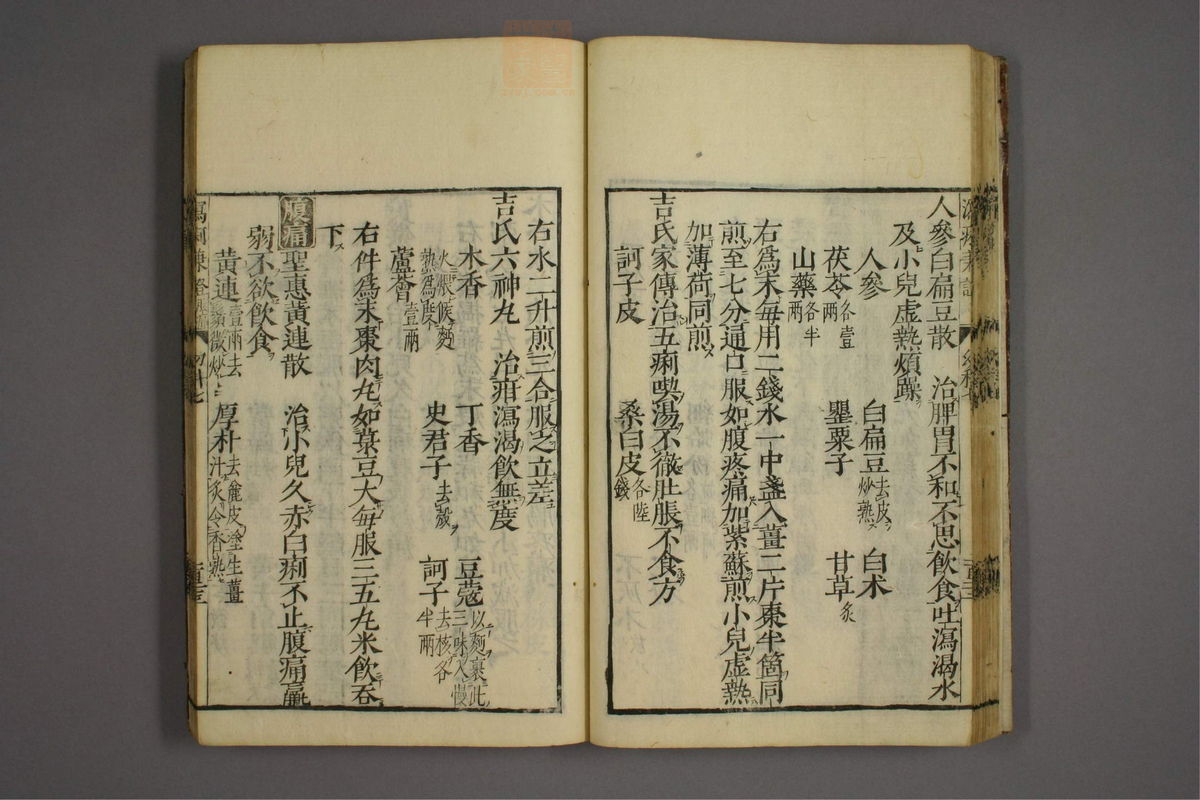 人參白扁豆散　治脾胃不和不思飲食吐瀉渴水
及小兒虛熱煩躁
人參　白扁豆去皮炒熟　白术
茯苓各壹兩　罌粟子　甘草炙
山藥各半兩
右爲末每用二錢水一中盞入薑二片棗半箇同
煎至七分通口服如腹疼痛加紫蘇煎小兒虛熱
加薄荷同煎
吉氏家傳治五痢喫湯不徹肚脹不食方
訶子皮　桑白皮各陸錢
右水二升煎三合服之立差
吉氏六神丸　治疳瀉渴飲無度
木香　丁香　豆蔻以麵裹此三味入慢
火煨候麵熟爲度　史君子去殼　訶子去核各半兩
蘆薈壹兩
右件爲末棗肉丸如菉豆大每服三五丸米飲吞
下
腹痛　聖惠黃連散　治小兒久赤白痢不止腹痛羸
弱不欲飲食
黃連壹兩去鬚微炒　厚朴去麄皮塗生薑汁炙令香熟